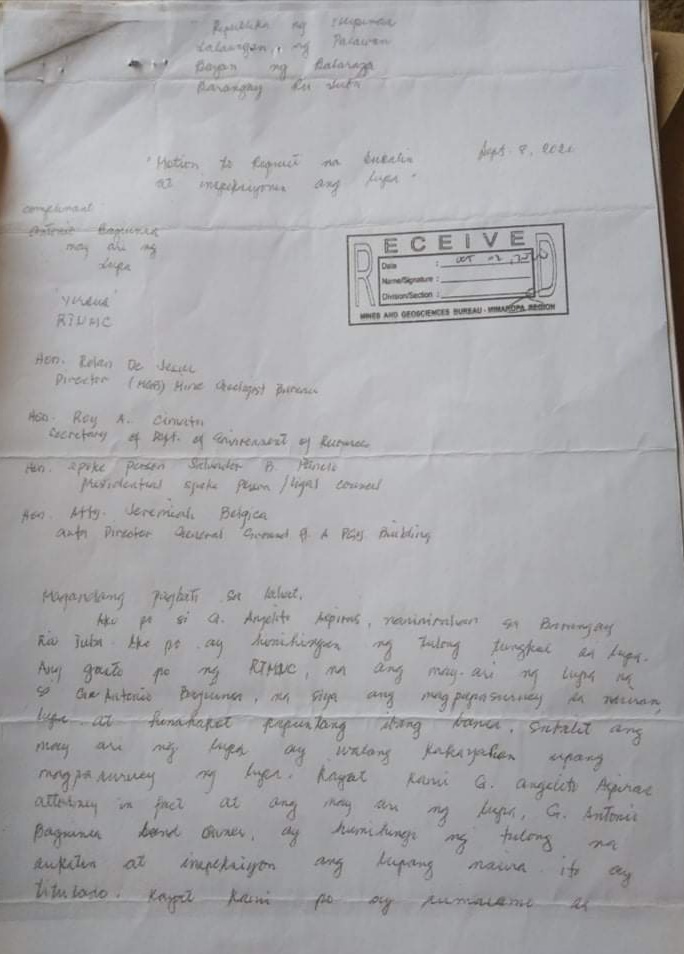 Republika ng Pilipinas
Lalawigan ng Palawan
Bayan ng Bataraza
Barangay Rio Tuba
Sept. 8, 2020
"Motion to Request na sukatin
at inspeksiyonin ang lupa"
complainant
Antonio
may ari ng
Lupa
RECEIVED
Date : OCT 02
Name/Signature :
Division/Section :
MINES AND GEOSCIENCES BUREAU - MIMAROPA REGION
"versus"
RTNMC
Hon. Rolan De Jesus
Director (MGB) Mine Geologist Bureau
Hon. Roy A. Cimatu
Secretary of Dept. of Environment of
Hon. Spoke person Salvador B. Panelo
Presidential spoke person / legal council
Hon. Atty. Jeremiah Belgica
Director General Ground Building
Magandang pagbati sa lahat.
Ako po si G. Angelito Aspiras, naninirahan sa Barangay
Rio Tuba. Ako po ay humihingi ng tulong tungkol sa lupa.
Ang gusto po ng RTNMC, na ang may-ari ng lupa na
si Antonio, na siya ang magpapasurvey sa
lupa at kapuntang ibang bansa, subalit ang
may ari ng lupa ay walang kakayahan upang
magpa survey ng lupa. Kayat kami G. Angelito Aspiras
attorney in fact at ang may ari ng lupa, G. Antonio
land owner, ay humihingi ng tulong na
sukatin at inspeksiyon ang lupang ito ay
titulado. Kayat kami po ay